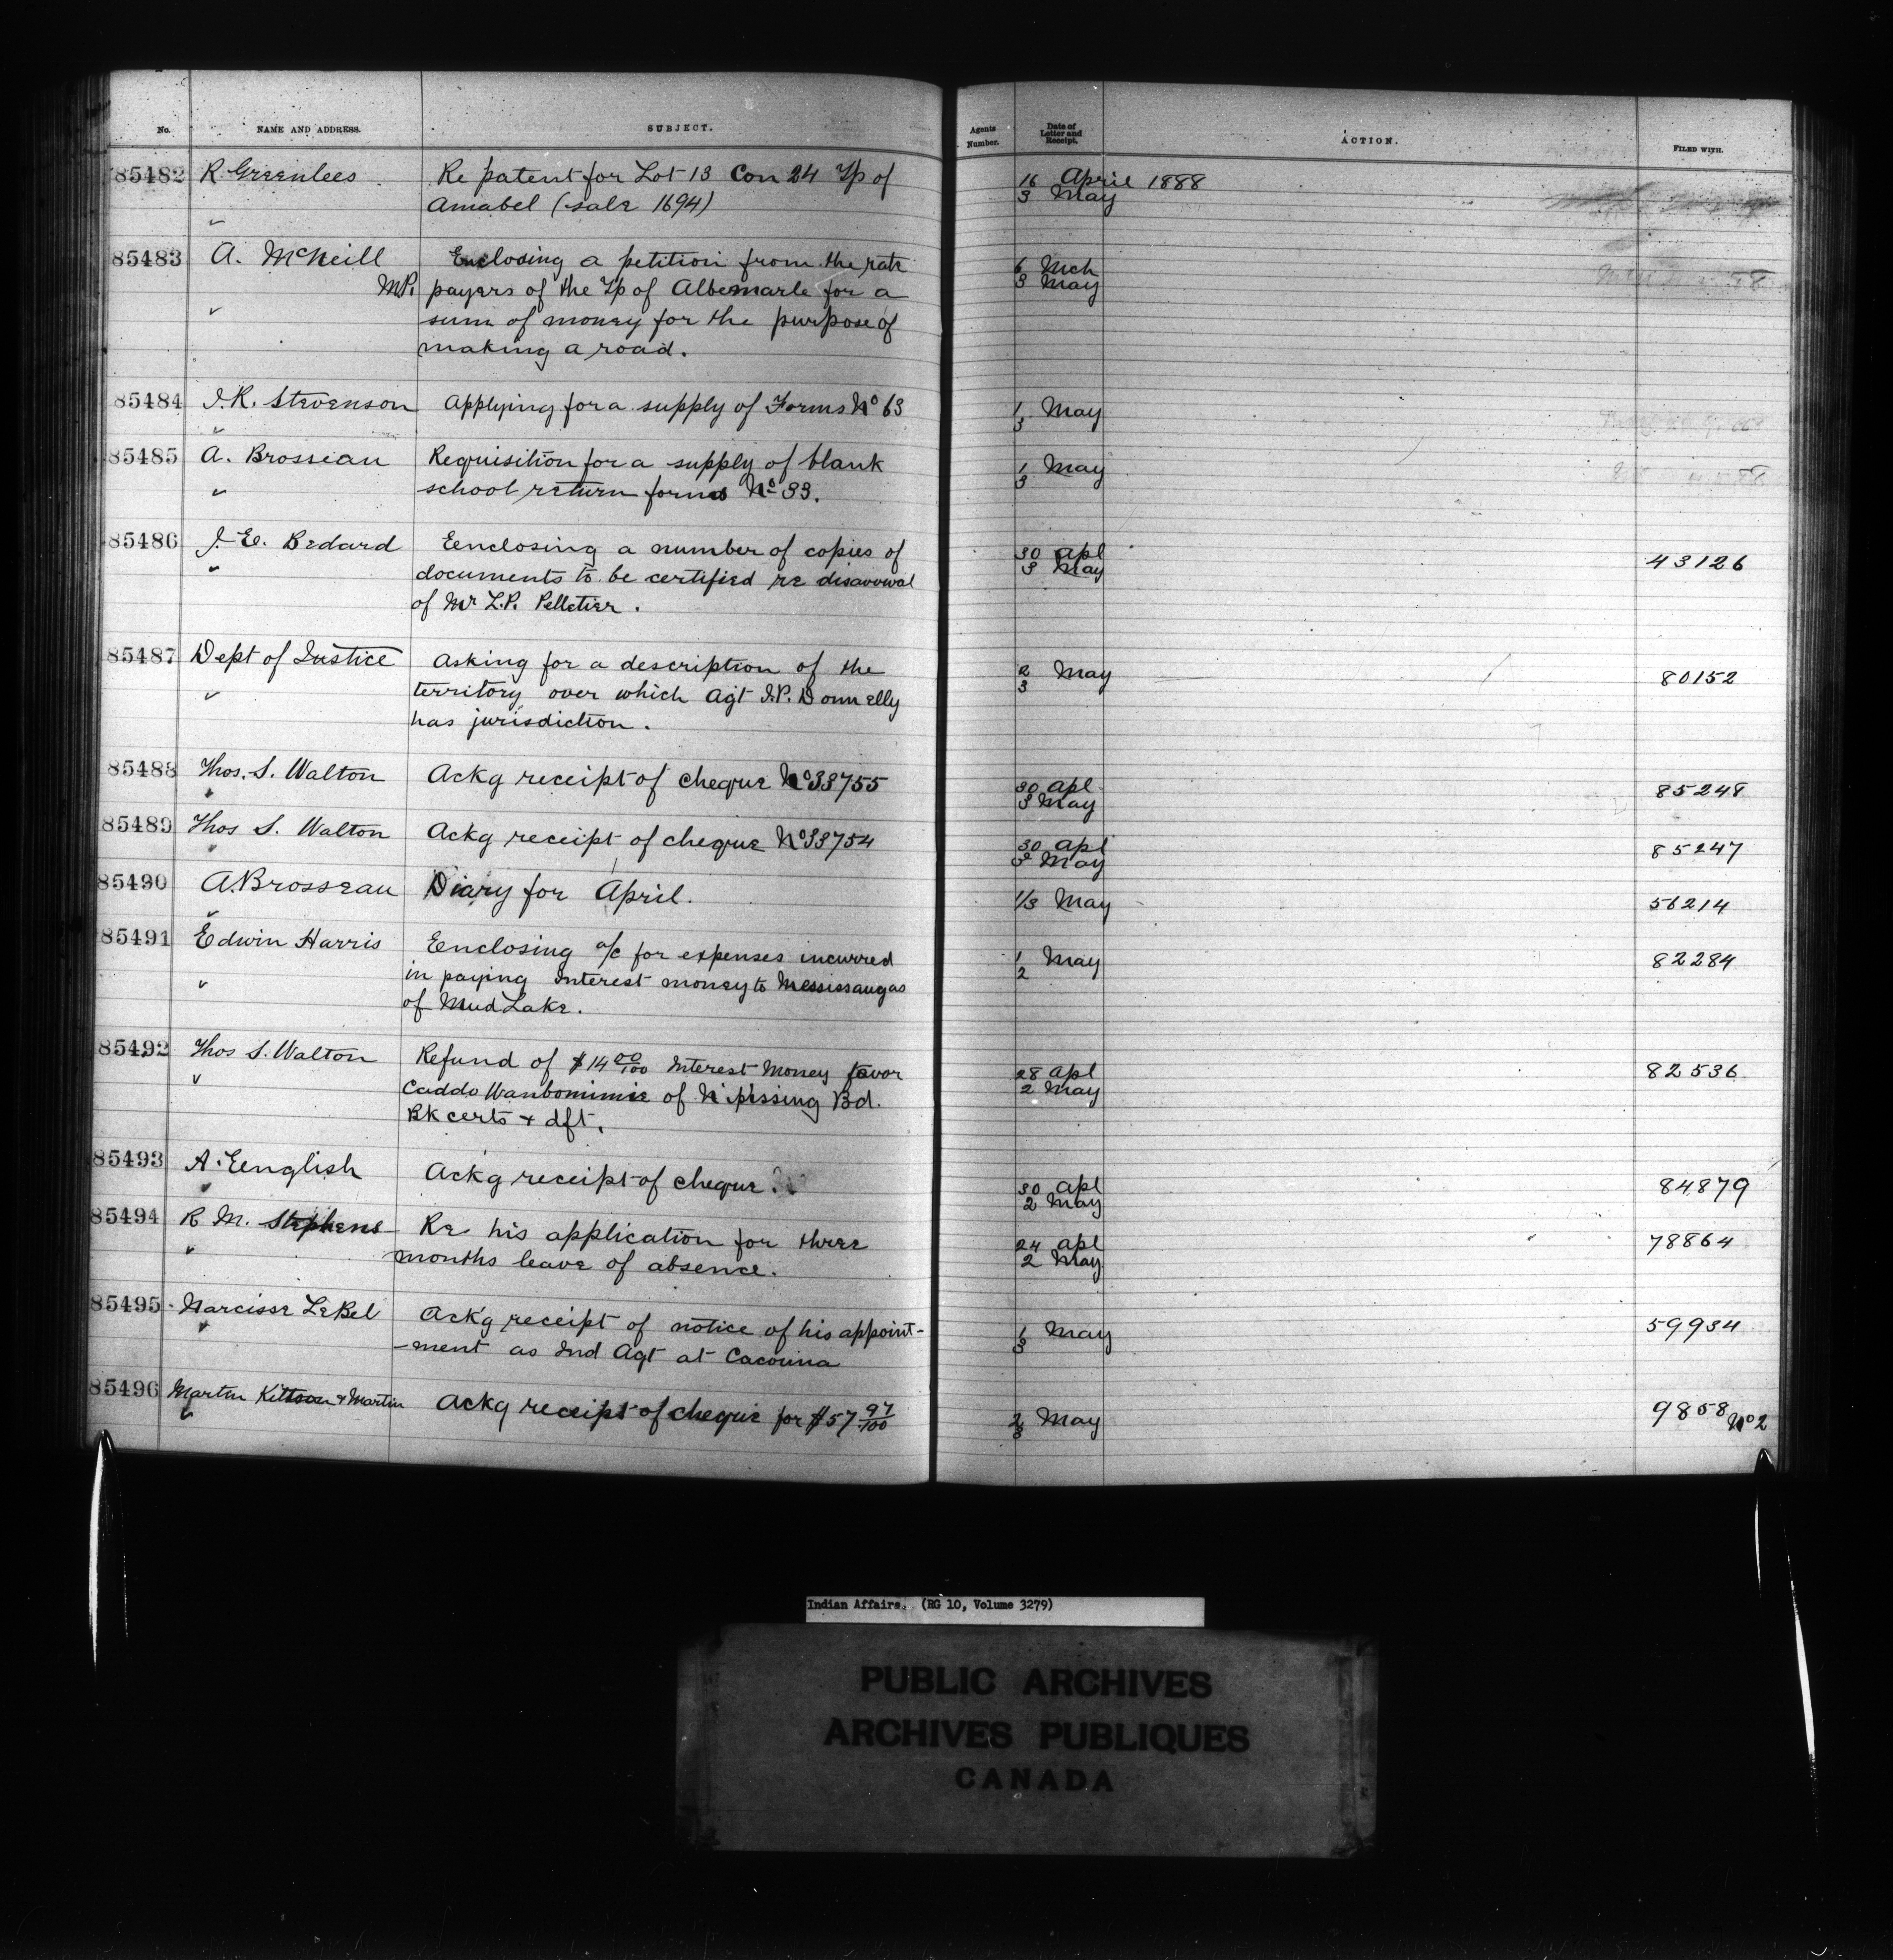 No. NAME AND ADDRESS. SUBJECT. Agents Number. Date of Letter and Receipt. ACTION. FILED WITH.
85482 R. Greenlees Re patent for Lot 13 Con 24 Tp of 16 April 1888
Amabel (sale 1694) 3 May
85483 A. McNeill Enclosing a petition from the rate 6 Mch
M.P. payers of the Tp of Albemarle for a 3 May
sum of money for the purpose of
making a road.
85484 J.R. Stevenson Applying for a supply of Forms No 63 1/3 May
85485 A. Brosseau Requisition for a supply of blank 1/3 May
school return forms No 33.
85486 J. E. Bedard Eenclosing a number of copies of 30 Apl 43126
documents to be certified re disavowal 3 May
of Mr L.P. Pelletier.
85487 Dept of Justice Asking for a description of the 2/3 May 80152
territory over which Agt J.P. Donnelly
has jurisdiction.
85488 Thos. S. Walton Ackg receipt of cheque No 33755 30 Apl 85248
3 May
85489 Thos S. Walton Ackg receipt of cheque No 33754 30 Apl 85247
3 May
85490 A. Brosseau Diary for April. 1/3 May 56214
85491 Edwin Harris Eenclosing a/c for expenses incurred 1/2 May 82284
in paying Interest money to Mississaugas
of Mud Lake.
85492 Thos S. Walton Refund of $14 00/100 Interest Money favor 28 Apl 82536
Caddo Wanbomimie of Nipissing Bd. 2 May
Bk certs & dft.
85493 A. Eenglish Ackg receipt of cheque. 30 Apl 84879
2 May
85494 R. M. Stephens Re his application for three 24 Apl 78864
months leave of absence. 2 May
85495 Narcisse LeBel Ack'g receipt of notice of his appoint- 1/3 May 59934
-ment as Ind Agt at Cacouna
85496 Martin Kittson & Martin Ackg receipt of cheque for $57 97/100 2/3 May 9858 No 2
Indian Affairs. (RG 10, Volume 3279)
PUBLIC ARCHIVES
ARCHIVES PUBLIQUES
CANADA